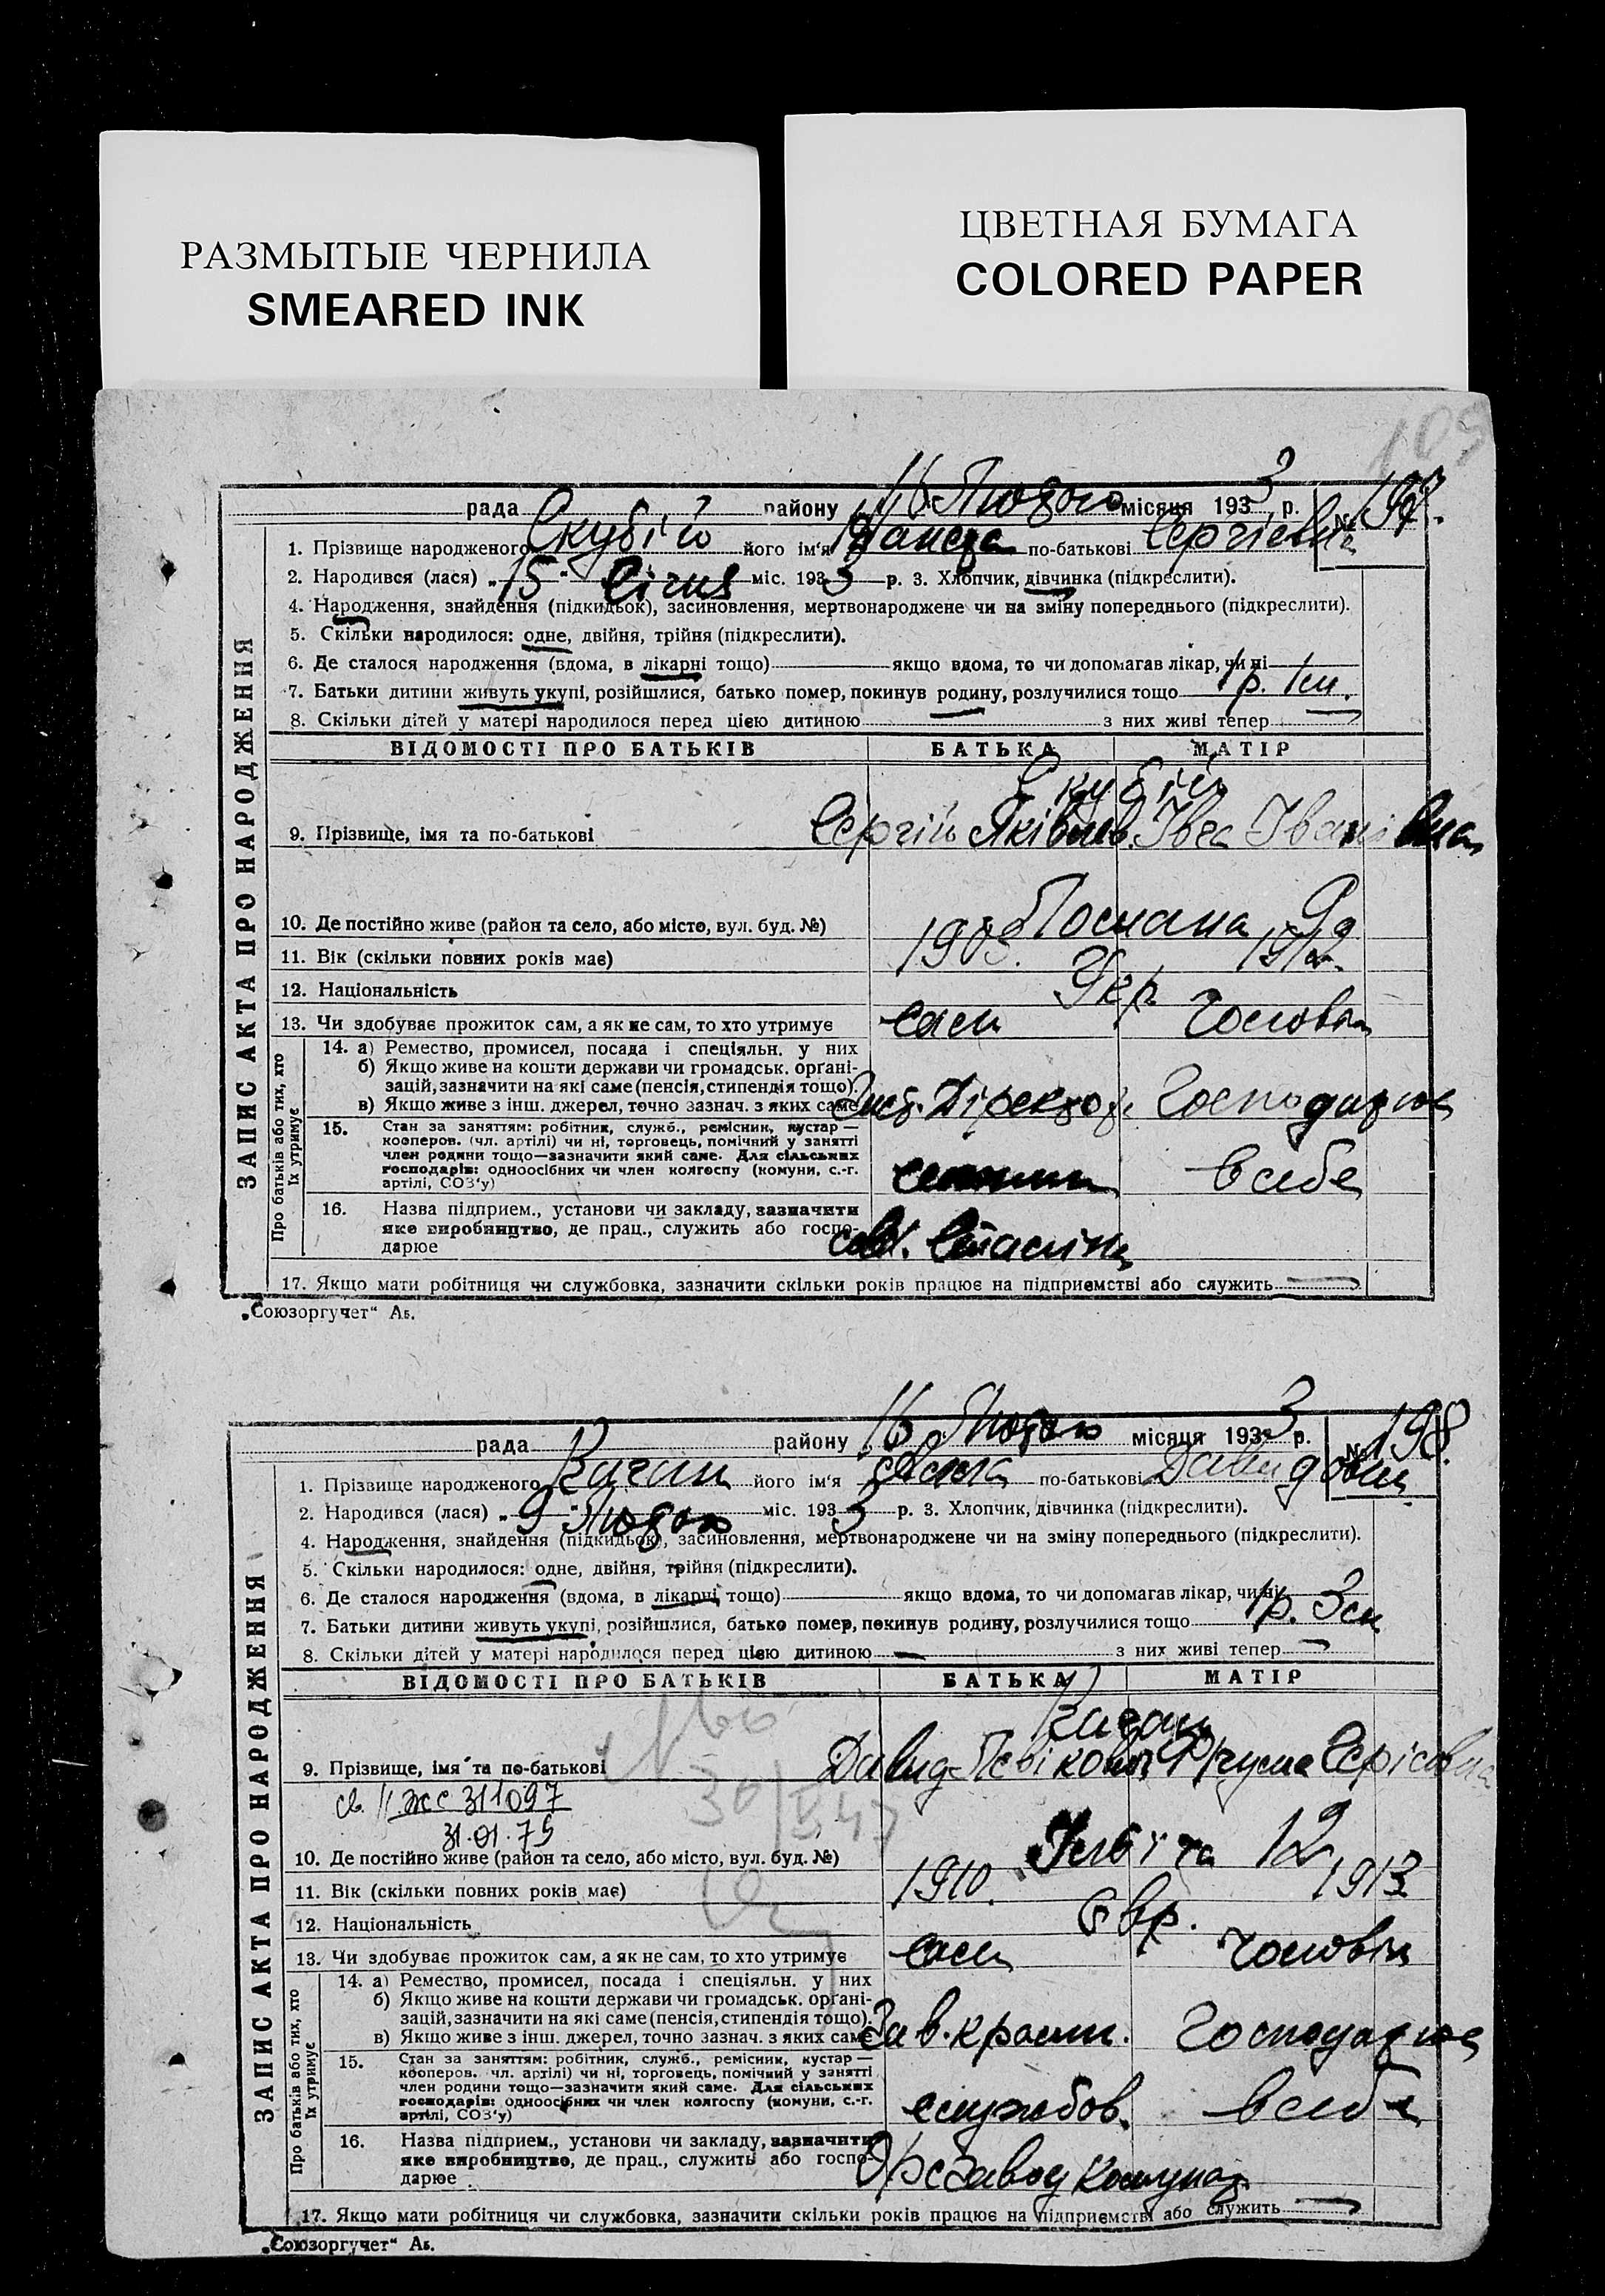 РАЗМЫТЫЕ ЧЕРНИЛА
SMEARED INK
ЦВЕТНАЯ БУМАГА
COLORED PAPER
109
ЗАПИС АКТА ПРО НАРОДЖЕННЯ
рада району 16 Лютого місяця 1933 р. № 197.
1. Прізвище народженого Скубій його ім'я по-батькові Сергіевна
2. Народився (лася) „15“ Січня міс. 1933 р. 3. Хлопчик, дівчинка (підкреслити).
4. Народження, знайдення (підкидьок), засиновлення, мертвонароджене чи на зміну попереднього (підкреслити).
5. Скільки народилося: одне, двійня, трійня (підкреслити).
6. Де сталося народження (вдома, в лікарні тощо) якщо вдома, то чи допомагав лікар, чи ні
7. Батьки дитини живуть укупі, розійшлися, батько помер, покинув родину, розлучилися тощо 1р. 1м.
8. Скільки дітей у матері народилося перед цією дитиною з них живі тепер
ВІДОМОСТІ ПРО БАТЬКІВ БАТЬКА МАТІР
Скубій
9. Прізвище, імя та по-батькові Сергій Яківлев. Івга Іванівна
10. Де постійно живе (район та село, або місто, вул. буд. №) 99
11. Вік (скільки повних років має) 1912.
12. Національність Укр.
13. Чи здобуває прожиток сам, а як не сам, то хто утримує сам чоловік
Про батьків або тих, хто їх утримує
14. а) Ремество, промисел, посада і спеціяльн. у них
б) Якщо живе на кошти держави чи громадськ. органі-
зацій, зазначити на які саме (пенсія, стипендія тощо).
в) Якщо живе з інш. джерел, точно зазнач. з яких саме Заст. Діректор. Господарює
15. Стан за заняттям: робітник, служб., ремісник, кустар —
кооперов. (чл. артілі) чи ні, торговець, помічний у занятті
член родини тощо—зазначити який саме. Для сільських
господарів: одноосібних чи член колгоспу (комуни, с.-г.
артілі, СОЗ'у) в себе
16. Назва підприєм., установи чи закладу, зазначити
яке виробництво, де прац., служить або госпо-
дарює
17. Якщо мати робітниця чи службовка, зазначити скільки років працює на підприємстві або служить
„Союзоргучет“ Аб.
ЗАПИС АКТА ПРО НАРОДЖЕННЯ
рада району 16 Лютого місяця 1933 р. № 198.
1. Прізвище народженого Каган його ім'я по-батькові Давидовна
2. Народився (лася) „9“ Лютого міс. 1933 р. 3. Хлопчик, дівчинка (підкреслити).
4. Народження, знайдення (підкидьок), засиновлення, мертвонароджене чи на зміну попереднього (підкреслити).
5. Скільки народилося: одне, двійня, трійня (підкреслити).
6. Де сталося народження (вдома, в лікарні тощо) якщо вдома, то чи допомагав лікар, чи ні
7. Батьки дитини живуть укупі, розійшлися, батько помер, покинув родину, розлучилися тощо 1р. 3м
8. Скільки дітей у матері народилося перед цією дитиною з них живі тепер
ВІДОМОСТІ ПРО БАТЬКІВ БАТЬКА МАТІР
Каган
9. Прізвище, імя та по-батькові Давид
св. II жс 311097
31.01.75
10. Де постійно живе (район та село, або місто, вул. буд. №) 12
11. Вік (скільки повних років має) 1910. 1913
12. Національність Євр.
13. Чи здобуває прожиток сам, а як не сам, то хто утримує сам чоловік
Про батьків або тих, хто їх утримує
14. а) Ремество, промисел, посада і спеціяльн. у них
б) Якщо живе на кошти держави чи громадськ. органі-
зацій, зазначити на які саме (пенсія, стипендія тощо).
в) Якщо живе з інш. джерел, точно зазнач. з яких саме Зав. крамн. Господарює
15. Стан за заняттям: робітник, служб., ремісник, кустар —
кооперов. чл. артілі) чи ні, торговець, помічний у занятті
член родини тощо—зазначити який саме. Для сільських
господарів: одноосібних чи член колгоспу (комуни, с.-г.
артілі, СОЗ'у) службов. в себе
16. Назва підприєм., установи чи закладу, зазначити
яке виробництво, де прац., служить або госпо-
дарює
17. Якщо мати робітниця чи службовка, зазначити скільки років працює на підприємстві або служить
„Союзоргучет“ Аб.